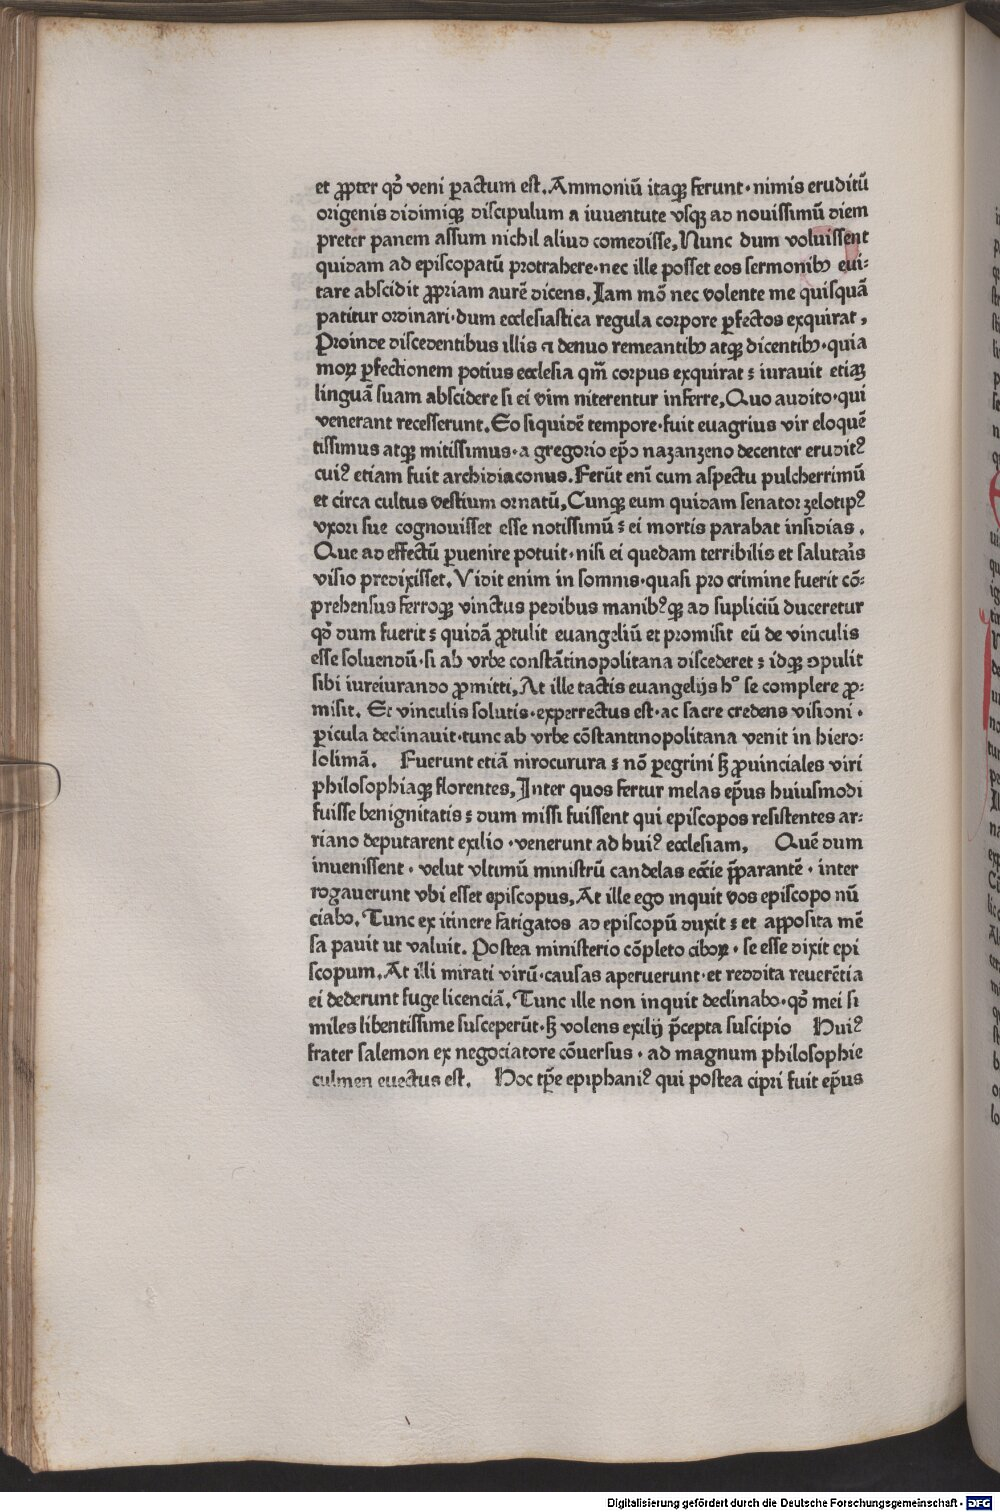 et ꝓpter qđ veni ꝑactum est. Ammoniū itaqꝫ ferunt· nimis eruditū
origenis didimiqꝫ discipulum a iuuentute vsqꝫ ad nouissimū diem
preter panem assum nichil aliud comedisse, Nunc dum voluissent
quidam ad episcopatū protrahere·nec ille posset eos sermonibꝰ eui⸗
tare abscidit ꝓpriam aurē dicens. Iam mō nec volente me quisquā
patitur ordinari·dum ecclesiastica regula corpore ꝑfectos exquirat,
Proinde discedentibus illis ⁊ denuo remeantibꝰ atqꝫ dicentibꝰ·quia
moꝝ ꝑfectionem potius ecclesia qm̄ corpus exquirat : iurauit etiaꝫ
linguā suam abscidere si ei vim niterentur inferre, Quo audito·qui
venerant recesserunt. Eo siquidē tempore·fuit euagrius vir eloquē
tissimus atqꝫ mitissimus·a gregorio ep̄o nazanzeno decenter eruditꝰ
cuiꝰ etiam fuit archidiaconus. Ferūt enī cum aspectu pulcherrimū
et circa cultus vestium ornatū, Cunqꝫ eum quidam senator zelotipꝰ
vxori sue cognouisset esse notissimū : ei mortis parabat insidias.
Que ad effectū ꝑuenire potuit·nisi ei quedam terribilis et salutaīs
visio predixisset. Vidit enim in somnis·quasi pro crimine fuerit cō⸗
prehensus ferroqꝫ vinctus pedibus manibꝰqꝫ ad supliciū duceretur
qđ dum fuerit : quidā ꝓtulit euangeliū et promisit eū de vinculis
esse soluendū·si ab vrbe constātinopolitana discederet : idqꝫ ꝯpulit
sibi iureiurando ꝓmitti, At ille tactis euangelijs hº se complere ꝓ⸗
misit. Et vinculis solutis·experrectus est·ac sacre credens visioni·
ꝑicula declinauit·tunc ab vrbe cōstantinopolitana venit in hiero⸗
solimā. Fuerunt etiā nirocurura : nō ꝑegrini sꝫ ꝓuinciales viri
philosophiaqꝫ florentes, Inter quos fertur melas ep̄us huiusmodi
fuisse benignitatis : dum missi fuissent qui episcopos resistentes ar⸗
riano deputarent exilio·venerunt ad huiꝰ ecclesiam, Quē dum
inuenissent·velut vltimū ministrū candelas ecc̄ie p̄parantē·inter
rogauerunt vbi esset episcopus, At ille ego inquit vos episcopo nū
ciabo. Tunc ex itinere fatigatos ad episcopū duxit : et apposita mē
sa pauit ut valuit. Postea ministerio cōpleto ciboꝝ·se esse dixit epi
scopum. At illi mirati virū·causas aperuerunt·et reddita reuerētia
ei dederunt fuge licenciā. Tunc ille non inquit declinabo·qđ mei si
miles libentissime susceperūt·sꝫ volens exilij p̄cepta suscipio Huiꝰ
frater salemon ex negociatore cōuersus·ad magnum philosophie
culmen euectus est. Hoc tp̄e epiphaniꝰ qui postea cipri fuit ep̄us
Digitalisierung gefördert durch die Deutsche Forschungsgemeinschaft - DFG